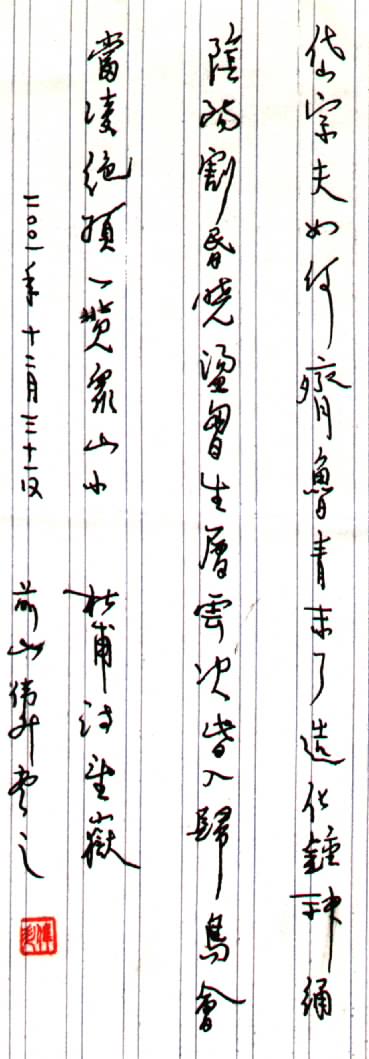 岱宗夫如何齊魯青未了造化鍾神
陰陽割昏曉盪胷生層雲決眥入歸鳥會
當凌絕頂一覽眾山小 杜甫詩望嶽
二〇〇一年十二月三十一 前山偉书之